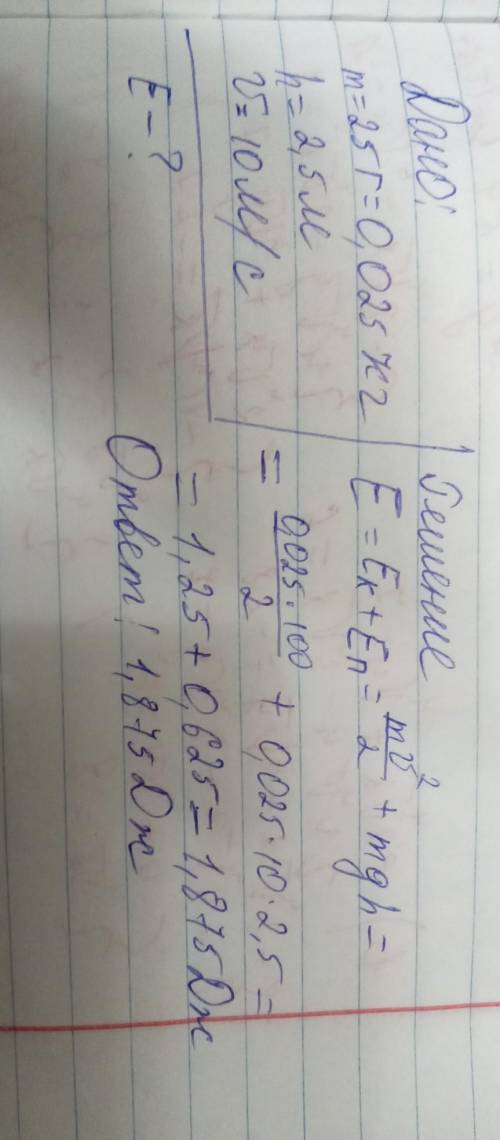 Дано:
m=25г=0,025 кг
h=2,5м
v=10м/с
E-?
Решение
E=Eк+Eп=mv²/2+mgh=
=0,025·100/2+0,025·10·2,5=
=1,25+0,625=1,875Дж
Ответ: 1,875Дж